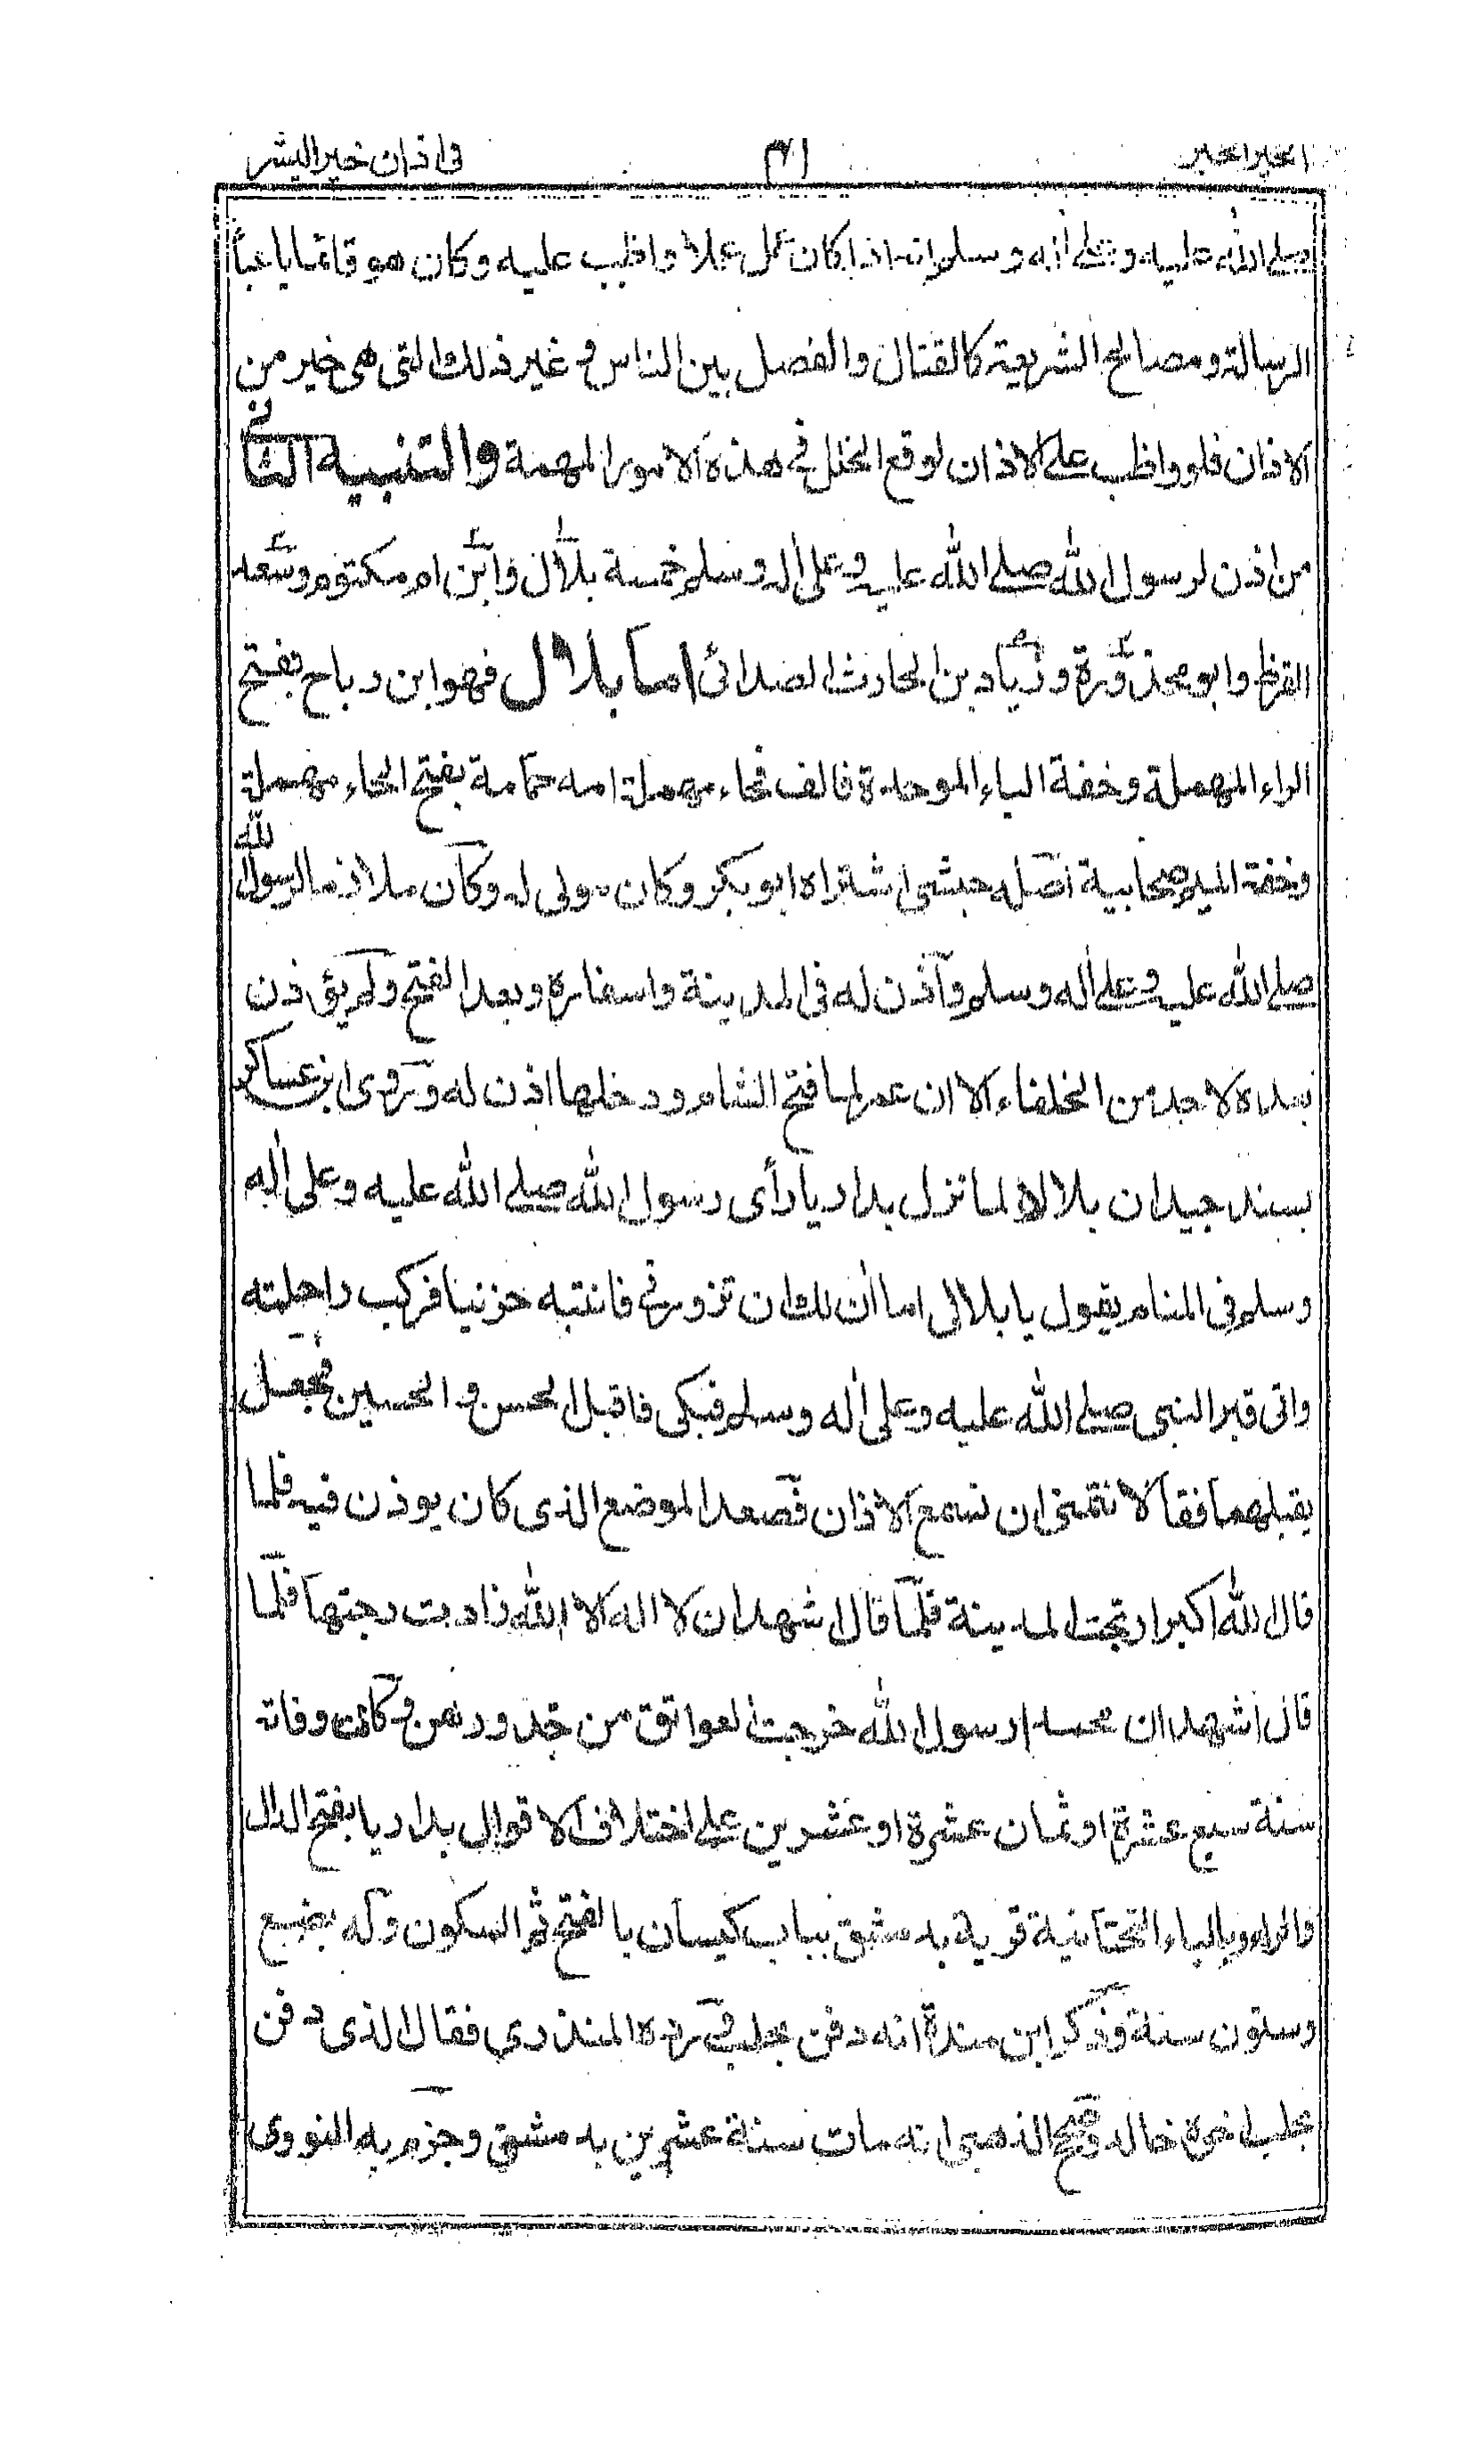 في اذان خير البشر
صلى الله عليه وعلى اله وسلم انه اذا كان عمل عملا واظب عليه وكان هو قائما باعباء
الرسالة ومصالح الشريعة كالقتال والفصل بين الناس و غير ذلك التى هى خير من
الاذان فلو واظب على الاذان لوقع الخلل في هذه الامور المهمة والتنبيه الثاني
من اذن لرسول الله صلى الله عليه وعلى اله وسلم خمسة بلال وابن ام مكتوم وسعد
القرظ وابو محذورة وزياد بن الحارث الصدائى اما بلال فهو ابن رباح بفتح
الراء المهملة وخفة الباء الموحدة فالف فحاء مهملة امه حمامة بفتح الحاء مهملة
وخفة الميم صحابية اصله حبشى اشتراه ابو بكر وكان مولى له وكان ملازما لرسول الله
صلى الله عليه وعلى اله وسلم واذن له فى المدينة واسفاره وبعد الفتح ولم يؤذن
بعده لاحد من الخلفاء الا ان عمر لما فتح الشام ودخلها اذن له وروى ابن عساكر
بسند جيد ان بلالا لما نزل بداريا رأى رسول الله صلى الله عليه وعلى اله
وسلم فى المنام يقول يا بلال اما ان لك ان تزورني فانتبه حزينا فركب راحلته
واتى قبر النبى صلى الله عليه وعلى اله وسلم فبكى فاقبل الحسن و الحسين فجعل
يقبلهما فقالا نتمنى ان نسمع الاذان فصعد الموضع الذى كان يوذن فيه فلما
قال الله اكبر ارتجت المدينة فلما قال اشهد ان لا اله الا الله زادت رجتها فلما
قال اشهد ان محمدا رسول الله خرجت العواتق من خدورهن و كانت وفاته
سنة سبع عشرة او ثمان عشرة او عشرين على اختلاف الاقوال بداريا بفتح الدال
فالراء وبالياء التحتانية قرية بدمشق بباب كيسان بالفتح ثم السكون وله بضع
وستون سنة وذكر ابن مندة انه دفن بحلب ورده المنذري فقال الذى دفن
بحلب اخوه خالد وصحح الذهبى انه مات سنة عشرين بدمشق وجزم به النووى